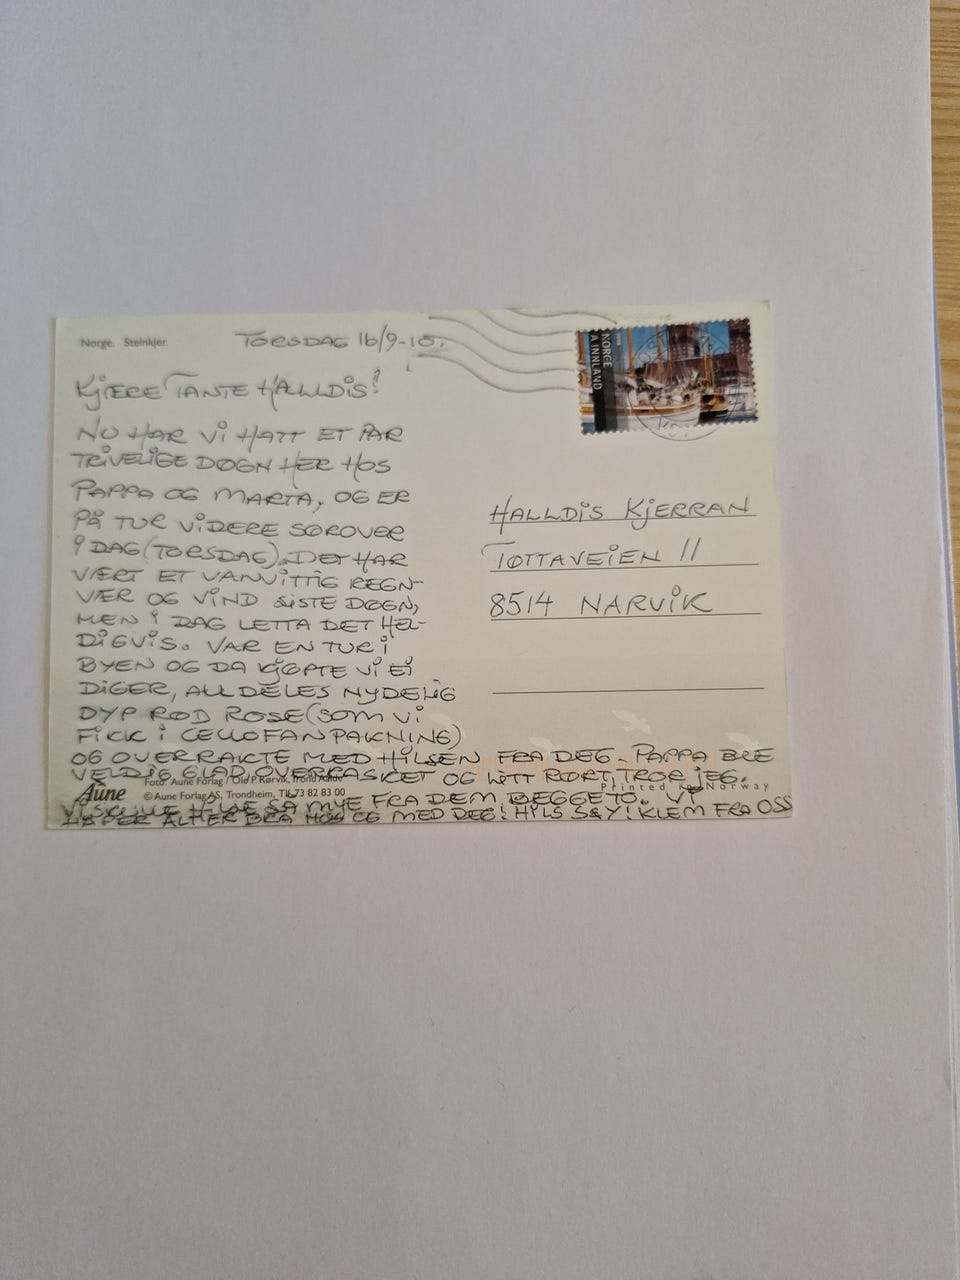 Norge. Steinkjer.
TORSDAG 16/9-10.
KJÆRE TANTE HALLDIS!
NU HAR VI HATT ET PAR
TRIVELIGE DØGN HER HOS
PAPPA OG MARTA, OG ER
PÅ TUR VIDERE SØROVER
I DAG (TORSDAG). DET HAR
VÆRT ET VANVITTIG REGN-
VÆR OG VIND SISTE DØGN,
MEN I DAG LETTA DET HEL-
DIGVIS. VAR EN TUR I
BYEN OG DA KJØPTE VI EI
DIGER, ALLDELES NYDELIG
DYP RØD ROSE (SOM VI
FICK I CELLOFANPAKNING)
OG OVERRAKTE MED HILSEN FRA DEG. PAPPA BLE
VELDIG GLAD, OVERRASKET OG LITT RØRT, TROR JEG.
VI SKULLE HILSE SÅ MYE FRA DEM BEGGE TO. VI
HÅPER ALT ER BRA HOS OG MED DEG! HILS SÅ KLEM FRA OSS
Foto: Aune Forlag / Ole P. Rørvik, Trond Aalde
Aune © Aune Forlag AS, Trondheim, Tlf. 73 82 83 00
Printed in Norway
NORGE
A INNLAND
HALLDIS KJERRAN
TØTTAVEIEN 11
8514 NARVIK